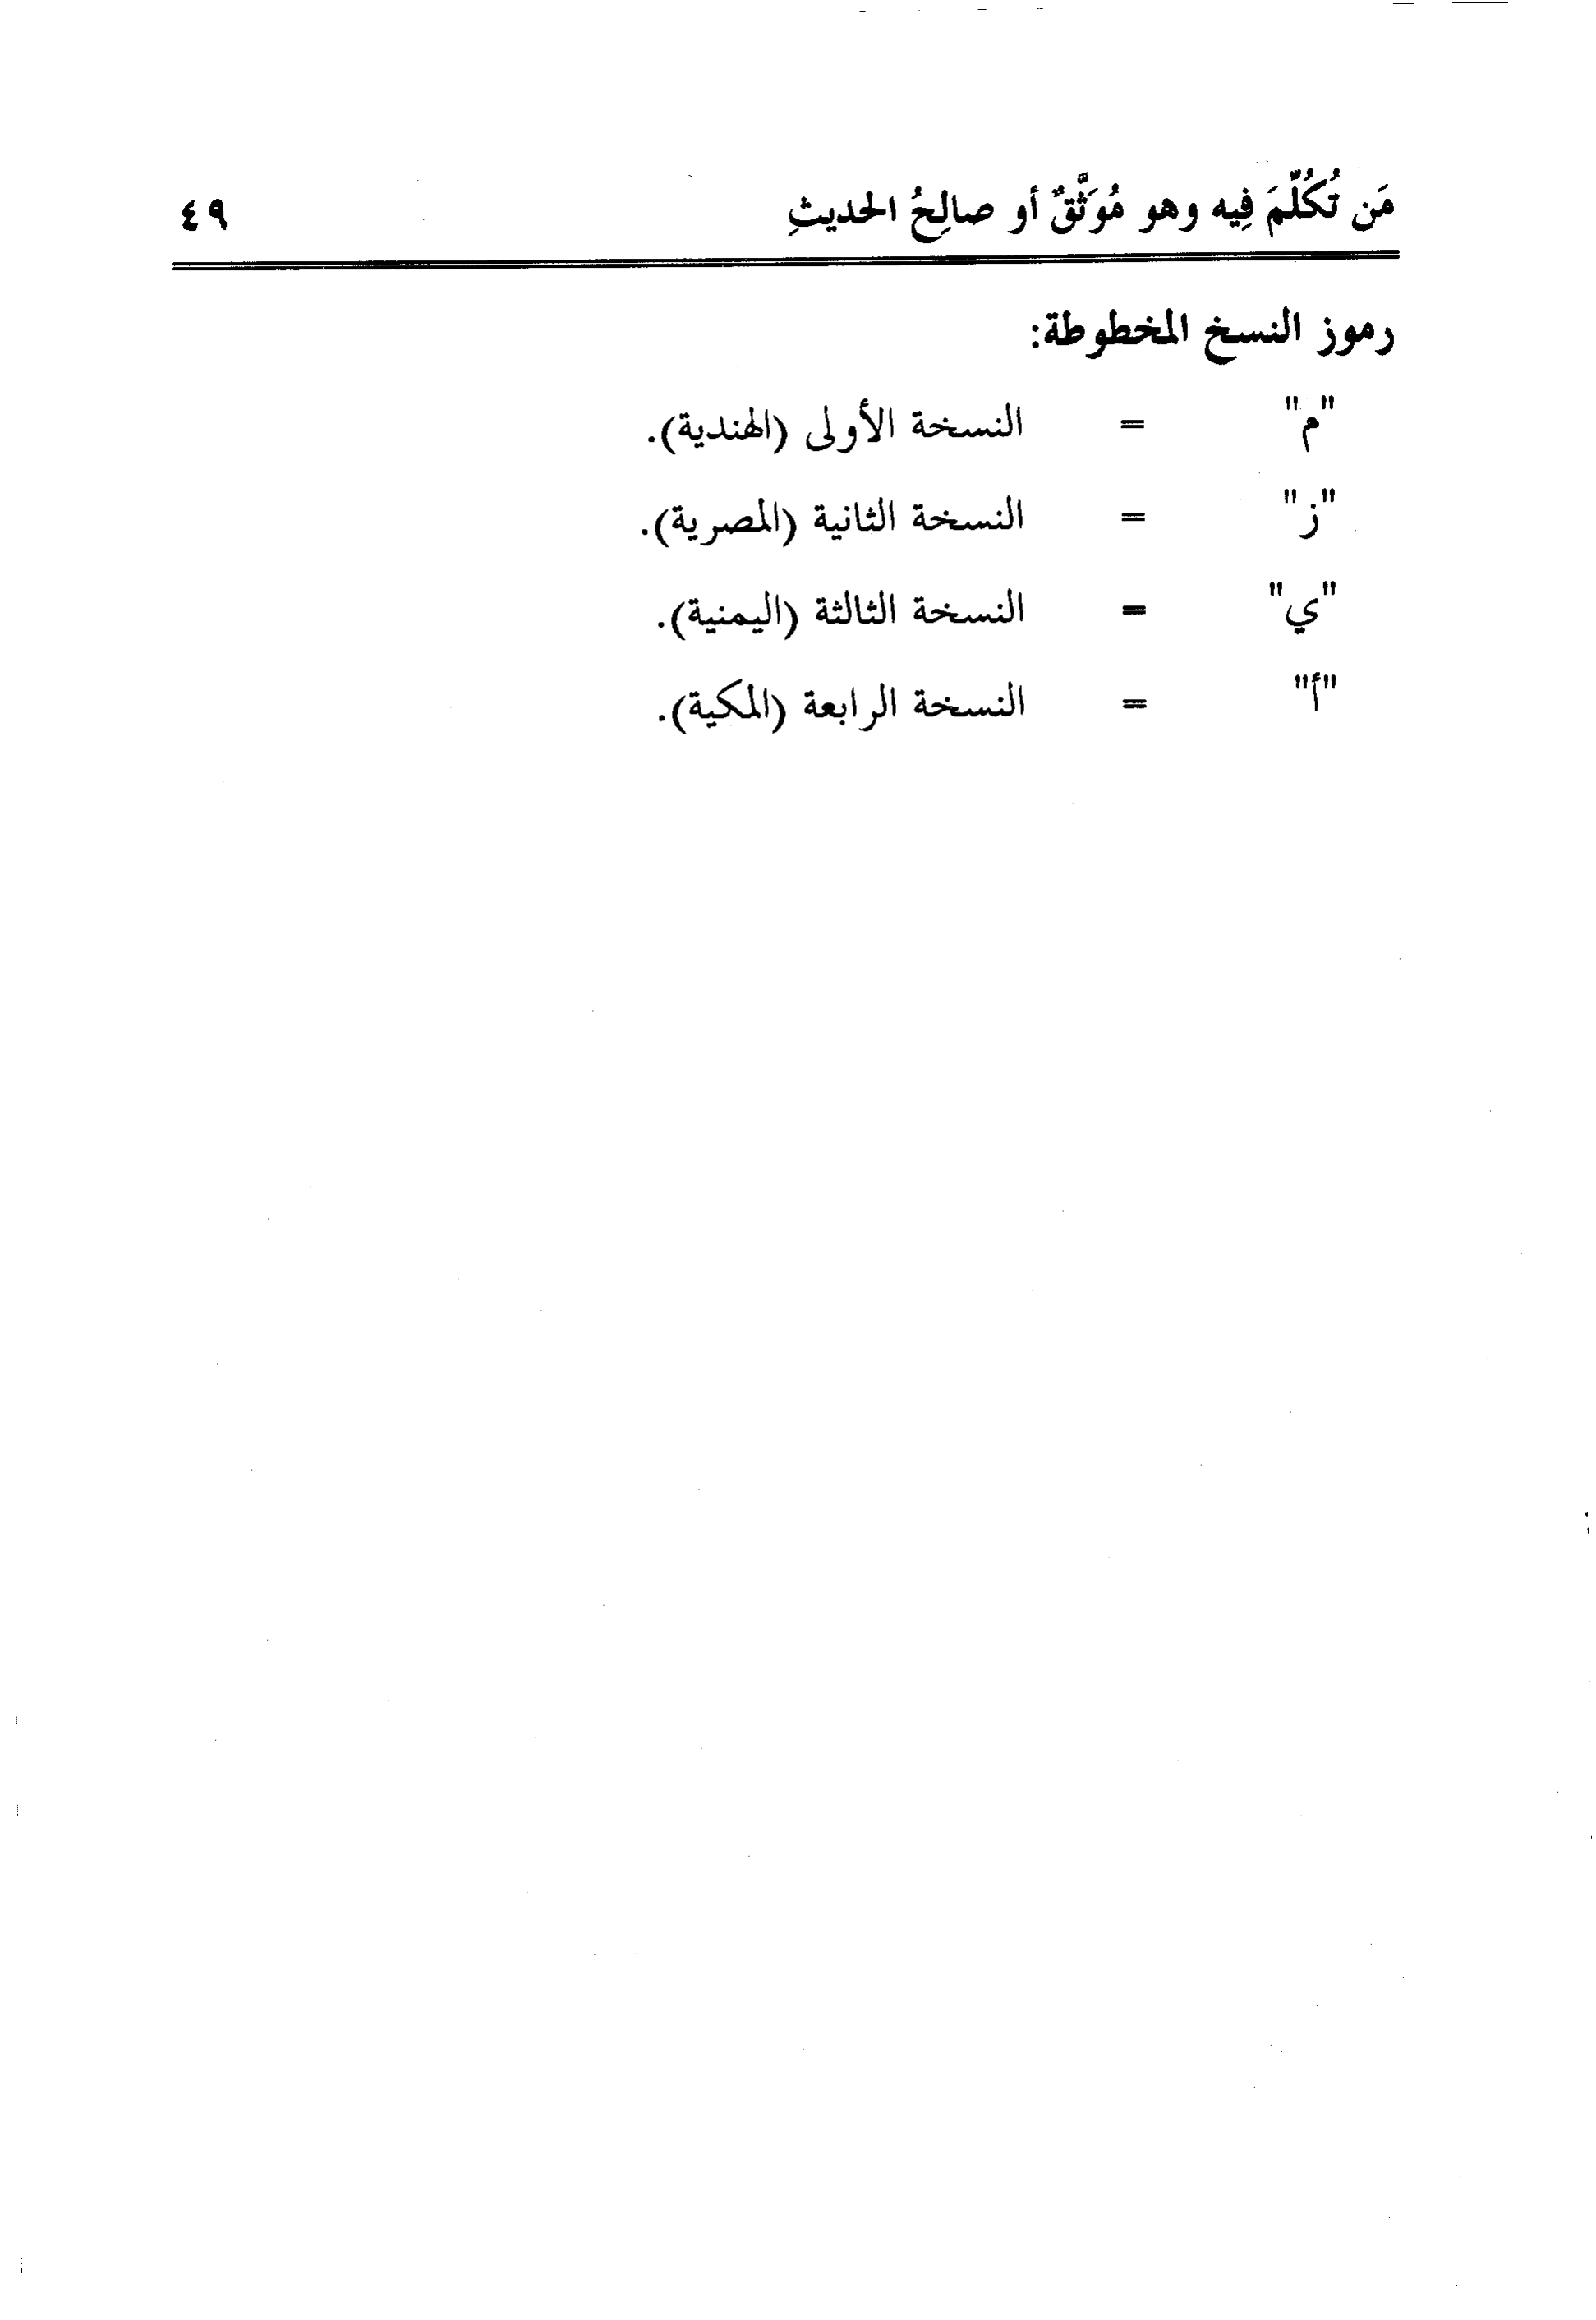 مَن تُكُلِّمَ فِيه وهو مُوَثَّقٌ أو صالِحُ الحديثِ ٤٩
رموز النسخ المخطوطة:
"م" = النسخة الأولى (الهندية).
"ز" = النسخة الثانية (المصرية).
"ي" = النسخة الثالثة (اليمنية).
"أ" = النسخة الرابعة (المكية).